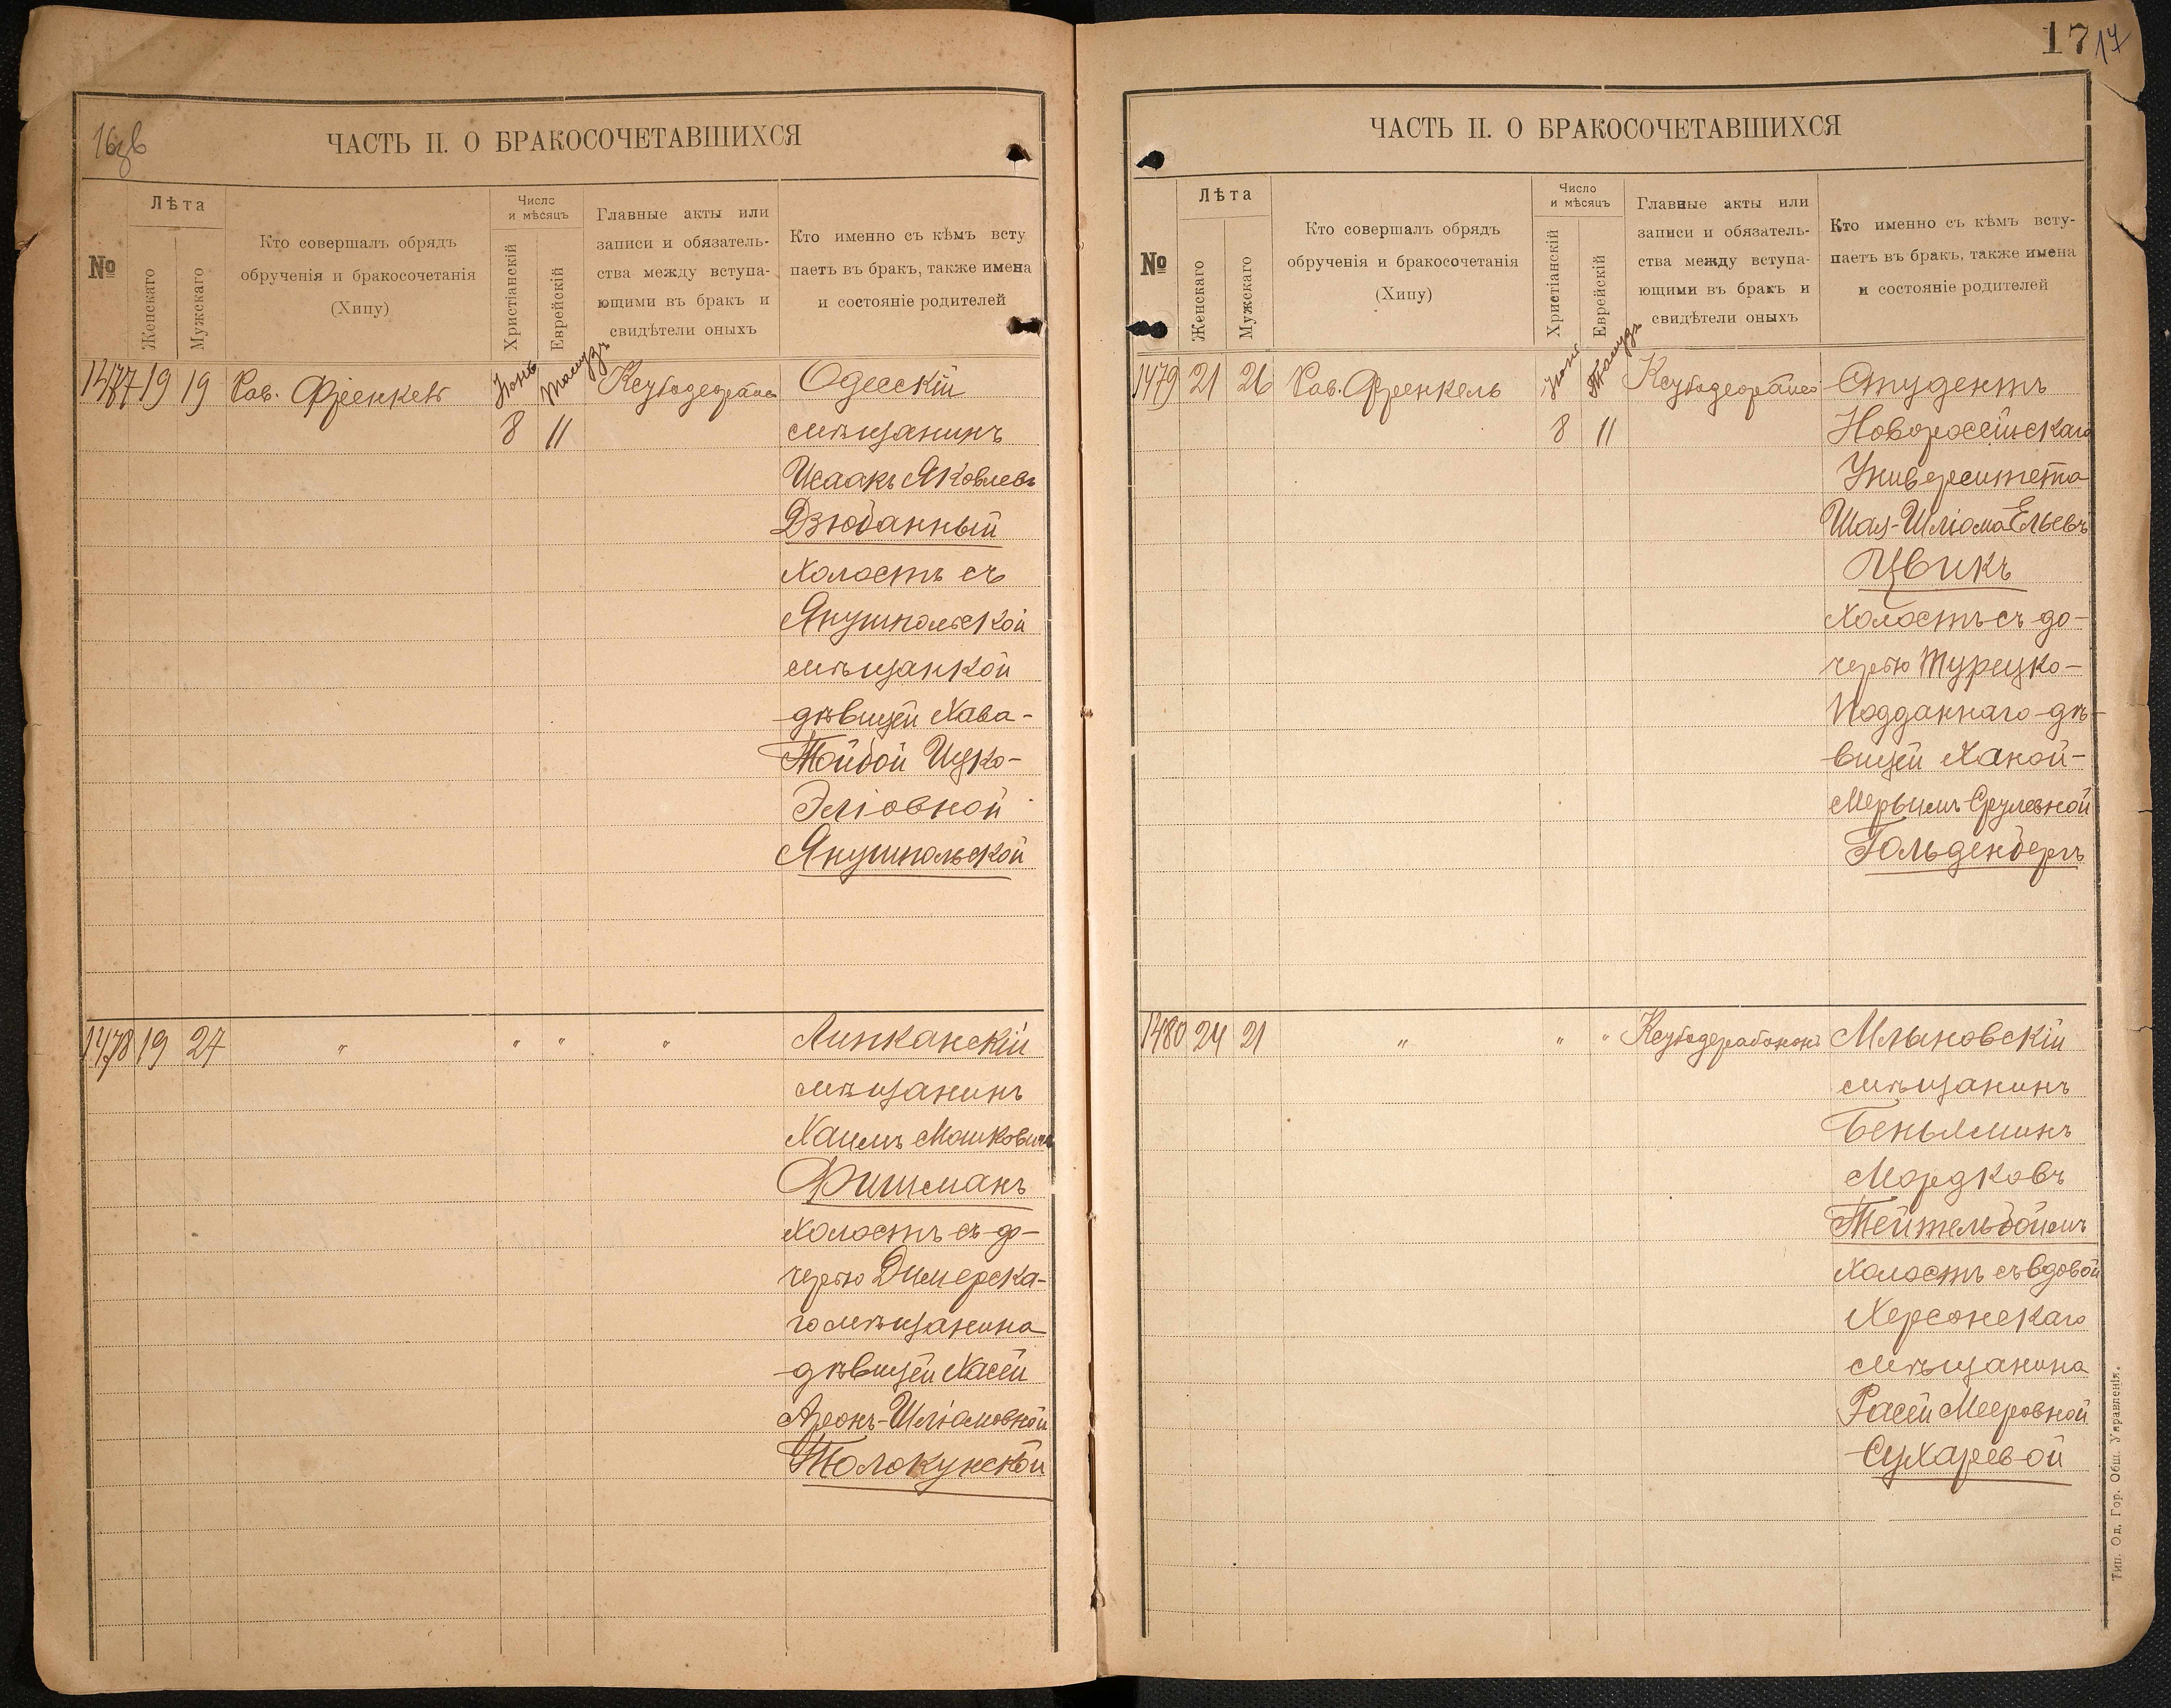 16зв
ЧАСТЬ II. О БРАКОСОЧЕТАВШИХСЯ
№
Лѣта
Женскаго
Мужскаго
Кто совершалъ обрядъ
обрученія и бракосочетанія
(Хипу)
Число
и мѣсяцъ
Христіанскій
Еврейскій
Главные акты или
записи и обязатель-
ства между вступа-
ющими въ бракъ и
свидѣтели оныхъ
Кто именно съ кѣмъ всту
паетъ въ бракъ, также имена
и состояніе родителей
1477 19 19 Рав. Френкель Іюнь Тамузъ Одесскій
8 11 мѣщанинъ
Исаакъ Яковлевъ
Дзюбанный
холостъ съ
Янушпольской
мѣщанкой
дѣвицей Хава-
Тойбой Ицко-
Эліовной
Янушпольской
1478 19 27 " " " " Липканскій
мѣщанинъ
Хаимъ Мошковичъ
Фишманъ
холостъ съ до-
черью Димерска-
го мѣщанина
дѣвицей Хасей
Аронъ-Шліомовной
Толокунской
17 17
ЧАСТЬ II. О БРАКОСОЧЕТАВШИХСЯ
№
Лѣта
Женскаго
Мужскаго
Кто совершалъ обрядъ
обрученія и бракосочетанія
(Хипу)
Число
и мѣсяцъ
Христіанскій
Еврейскій
Главные акты или
записи и обязатель-
ства между вступа-
ющими въ бракъ и
свидѣтели оныхъ
Кто именно съ кѣмъ всту-
паетъ въ бракъ, также имена
и состояніе родителей
1479 21 26 Рав. Френкель Іюнь Тамузъ Студентъ
8 11 Новороссійскаго
Университета
Шая-Шліома Ельевъ
Цвикъ
холостъ съ до-
черью Турецко-
Подданнаго дѣ-
вицей Ханой-
Мерьимъ Срулевной
Гольденбергъ
1480 24 21 " " " Млыновскій
мѣщанинъ
Беньяминъ
Мордковъ
Тейтельбоймъ
холостъ съ вдовой
Херсонскаго
мѣщанина
Расей Мееровной
Сухаревой
Тип. Од. Гор. Общ. Управленія.